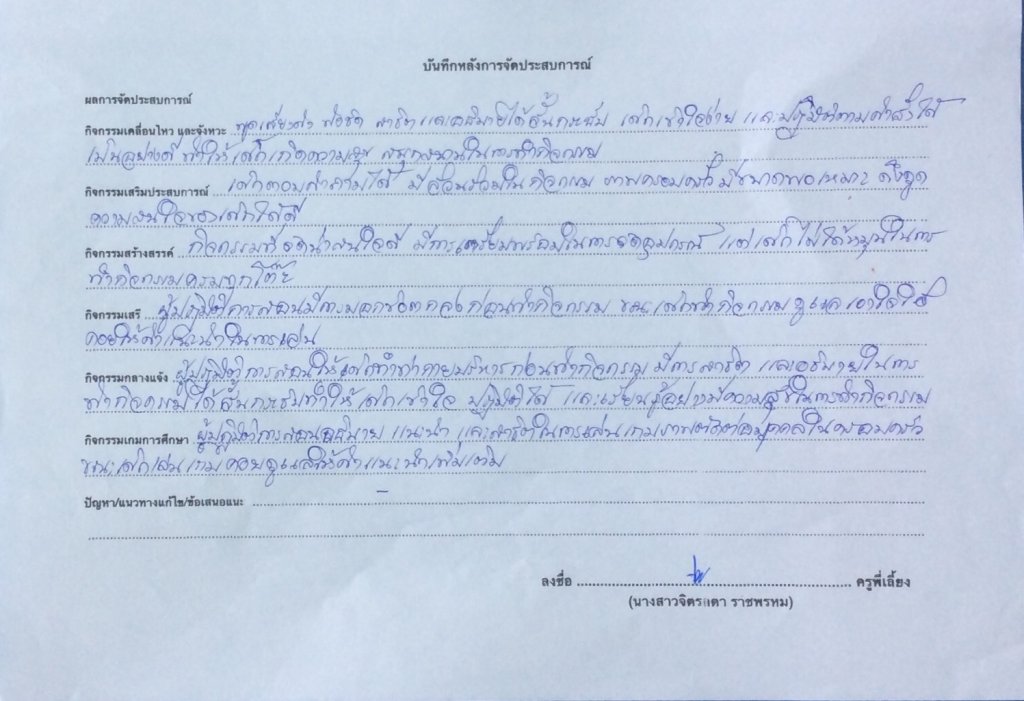 บันทึกหลังการจัดประสบการณ์
ผลการจัดประสบการณ์
กิจกรรมเคลื่อนไหว และจังหวะ พูดเสียงดัง ฟังชัด สาธิต และอธิบายได้สั้นกระชับ เด็กเข้าใจง่าย และปฏิบัติตามคำสั่งได้
เป็นอย่างดี ทำให้เด็กเกิดความสุข สนุกสนานในการทำกิจกรรม
กิจกรรมเสริมประสบการณ์ เด็กตอบคำถามได้ มีส่วนร่วมในกิจกรรม ภาพครอบครัวมีขนาดพอเหมาะ ดึงดูด
ความสนใจของเด็กได้ดี
กิจกรรมสร้างสรรค์ กิจกรรมที่จัดน่าสนใจดี มีการเตรียมพร้อมในการจัดอุปกรณ์ แต่เด็กไม่ได้หมุนในการ
ทำกิจกรรมครบทุกโต๊ะ
กิจกรรมเสรี ผู้ปฏิบัติการสอนมีการบอกข้อตกลงก่อนทำกิจกรรม ขณะเด็กทำกิจกรรมดูแลเอาใจใส่
คอยให้คำแนะนำในการเล่น
กิจกรรมกลางแจ้ง ผู้ปฏิบัติการสอนให้เด็กทำท่ากายบริหารก่อนทำกิจกรรม มีการสาธิต และอธิบายในการ
ทำกิจกรรมได้สั้นกระชับทำให้เด็กเข้าใจ ปฏิบัติได้ และเรียนรู้อย่างมีความสุขในการทำกิจกรรม
กิจกรรมเกมการศึกษา ผู้ปฏิบัติการสอนอธิบาย แนะนำ และสาธิตในการเล่นเกมภาพตัดต่อบุคคลในครอบครัว
ขณะเด็กเล่นเกมคอยดูแลให้คำแนะนำเพิ่มเติม
ปัญหา/แนวทางแก้ไข/ข้อเสนอแนะ –
ลงชื่อ ครูพี่เลี้ยง
(นางสาวจิตรลดา ราชพรหม)